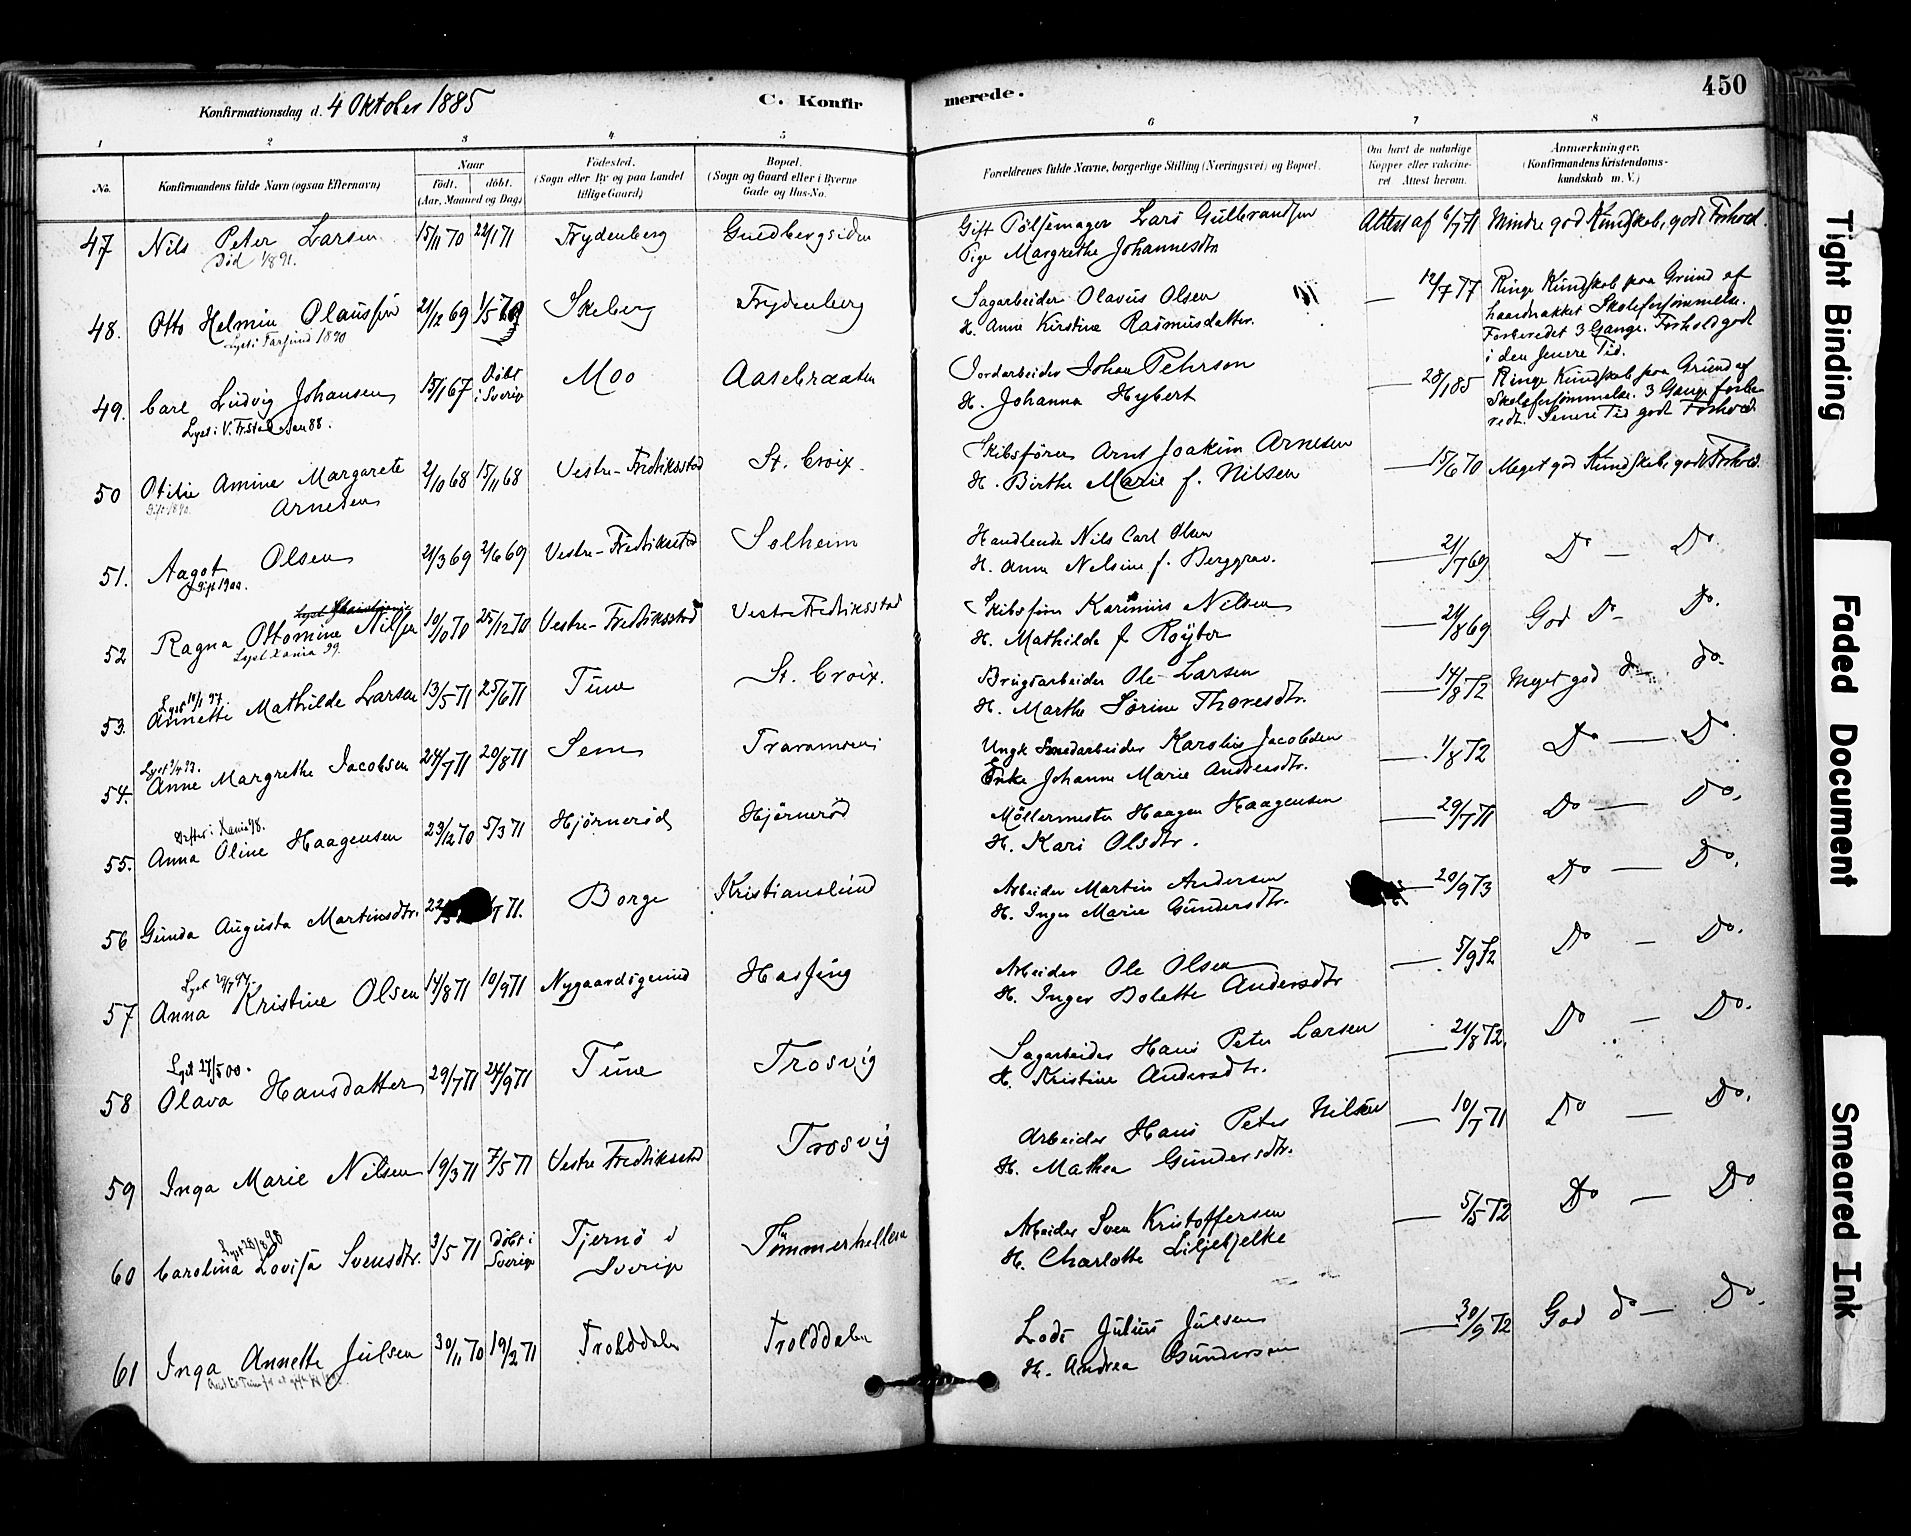 Konfirmationsdag d. 4 Oktober 1885
C. Konfir merede.
450
1 2 3 4 5 6 7 8
No.
Konfirmandens fulde Navn (ogsaa Efternavn)
Naar
födt. döbt.
(Aar, Maaned og Dag)
Födested.
(Sogn eller By og paa Landet
tillige Gaard)
Bopæl.
(Sogn og Gaard eller i Byerne
Gade og Hus-No.
Forældrenes fulde Navne, borgerlige Stilling (Næringsvei) og Bopæl.
Om havt de naturlige
Kopper eller vakcine-
ret. Attest herom.
Anmærkninger.
(Konfirmandens Kristendoms-
kundskab m. V.)
47 Nils Peter Larsen 15/11 70 22/1 71 Frydenberg Guldbergsiden Gift Pölsemager Lars Gulbrandsen Attest af 6/7 71 Mindre god Kundskab, godt Forhold.
Död 1/8 91.
Pige Margrethe Johannesdtr
48. Otto Helmin Olaussen 21/12 69 1/5 70 Skeberg Frydenberg Sagarbeider Olavus Olsen — 12/7 77 Ringe Kundskab paa Grund af
H. Anne Kirstine Rasmusdatter.
haardnakket Skoleforsömmelse.
Lyst i Farsund 1890
Forberedet 3 Gange. Forhold godt
i den senere Tid.
49. Carl Ludvig Johansen 15/1 67 Döbt i Sverige Moo Aasebraaten Jordarbeider Johan Pehrson — 28/1 85 Ringe Kundskab paa Grund af
H. Johanna Hybert
Skoleforsömmelse. 3 Gange forbe-
redt. Senere Tid godt Forhold.
Lyst i V. Fr.stad Jan 88.
50 Otilie Amine Margarete 2/10 68 15/11 68 Vestre-Fredriksstad St. Croix. Skibsförer Arnt Joakim Arnesen — 15/6 70 Meget god Kundskab, godt Forhold.
Gift 1890. Arnesen
H. Birthe Marie f. Nilsen
51. Aagot Olsen 21/3 69 2/6 69 Vestre-Fredriksstad Solheim Handlende Nils Carl Olsen — 21/7 69 Do — Do
Gift 1900.
H. Anna Nelsine f. Berggrav.
Lyst Christiania
52 Ragna Ottomine Nilsen 10/10 70 25/12 70 Vestre-Fredriksstad Vestre Fredriksstad Skibsförer Karinius Nilsen — 21/8 69 God Do — Do.
Lyst Xania 99.
H. Mathilde f. Röyter
Lyst 18/1 97.
53. Annette Mathilde Larsen 13/5 71 25/6 71 Tune St. Croix. Brugsarbeider Ole Larsen — 14/8 72 Meget god do — do.
H. Marthe Sörine Thoresdtr.
54. Anne Margrethe Jacobsen 24/7 71 20/8 71 Sem Ungk. Smedarbeider Karolius Jacobsen — 1/8 72 Do — Do
Enke Johanne Marie Andersdtr.
55. Anna Oline Haagensen 23/12 70 5/3 71 Hjörneröd Hjörneröd Möllermester Haagen Haagensen — 29/7 71 Do — Do.
H. Kari Olsdtr.
56 Gunda Augusta Martinsdtr. 71. Borge Kristianslund Arbeider Martin Andersen — 20/9 73 Do — Do.
H. Inger Marie Gundersdtr.
57 Anna Kristine Olsen 14/8 71 10/9 71 Nygaardsgrund Hasfing Arbeider Ole Olsen — 5/9 72 Do — Do.
H. Inger Bolette Andersdtr
Lyst 27/5 00.
58 Olava Hansdatter 29/7 71 24/9 71 Tune Trosvig Sagarbeider Hans Peter Larsen — 21/8 72. Do — Do.
H. Kristine Andersdtr.
59 Inga Marie Nilsen 19/3 71 7/5 71 Vestre Fredriksstad Trosvig Arbeider Hans Peter Nilsen — 10/7 71 Do — Do.
H. Mathea Gundersdtr.
60 Carolina Lovisa Svensdtr. 3/5 71 Döbt i Sverige Tjernö i Sverige Tömmerhellen Arbeider Sven Kristoffersen — 5/5 72 Do — Do
H. Charlotte Liljebjelke
61 Inga Annette Julsen 30/11 70 19/2 71 Trolddalen Trolddalen Lods Julius Julsen — 30/9 72 God do — Do.
H. Andrea Gundersen
Tight Binding
Faded Document
Smeared Ink